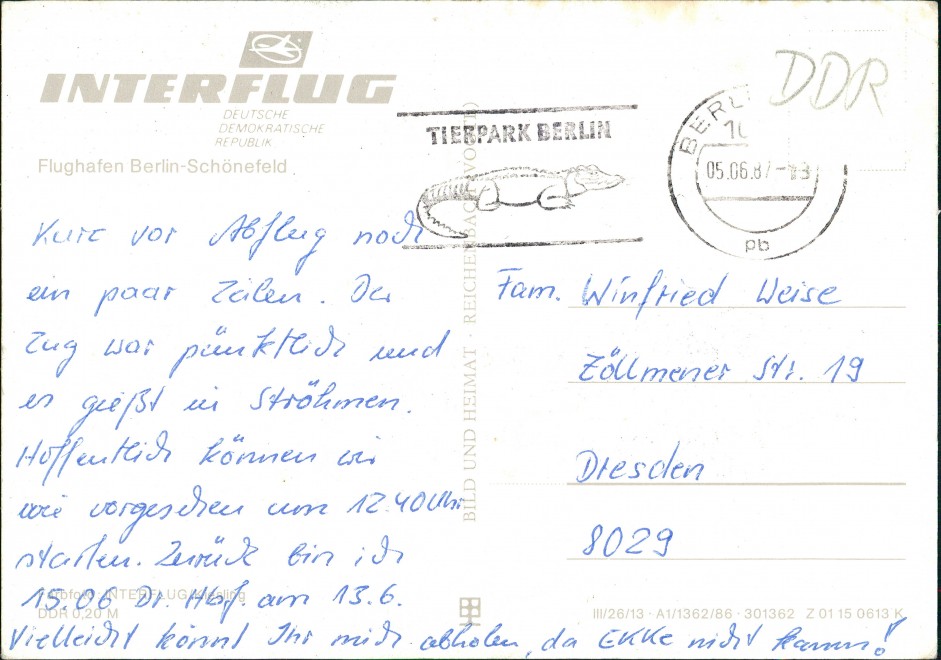 INTERFLUG
DEUTSCHE
DEMOKRATISCHE
REPUBLIK
Flughafen Berlin-Schönefeld
TIERPARK BERLIN
05.06.87
pb
DDR
Kurz vor Abflug noch
ein paar Zeilen. Der
Zug war pünktlich und
es gießt in Ströhmen.
Hoffentlich können wir
wie vorgesehen um 12.40 Uhr
starten. Zurück bin ich
15.06 Dr. Hbf. am 13.6.
Vielleicht könnt Ihr mich abholen, da EKKe nicht kann!
INTERFLUG
DDR 0,20 M
BILD UND HEIMAT · REICHENBACH (VOGTL)
Fam. Winfried Weise
Zöllmener Str. 19
Dresden
8029
III/26/13 · A1/1362/86 · 301362 Z 01 15 0613 K